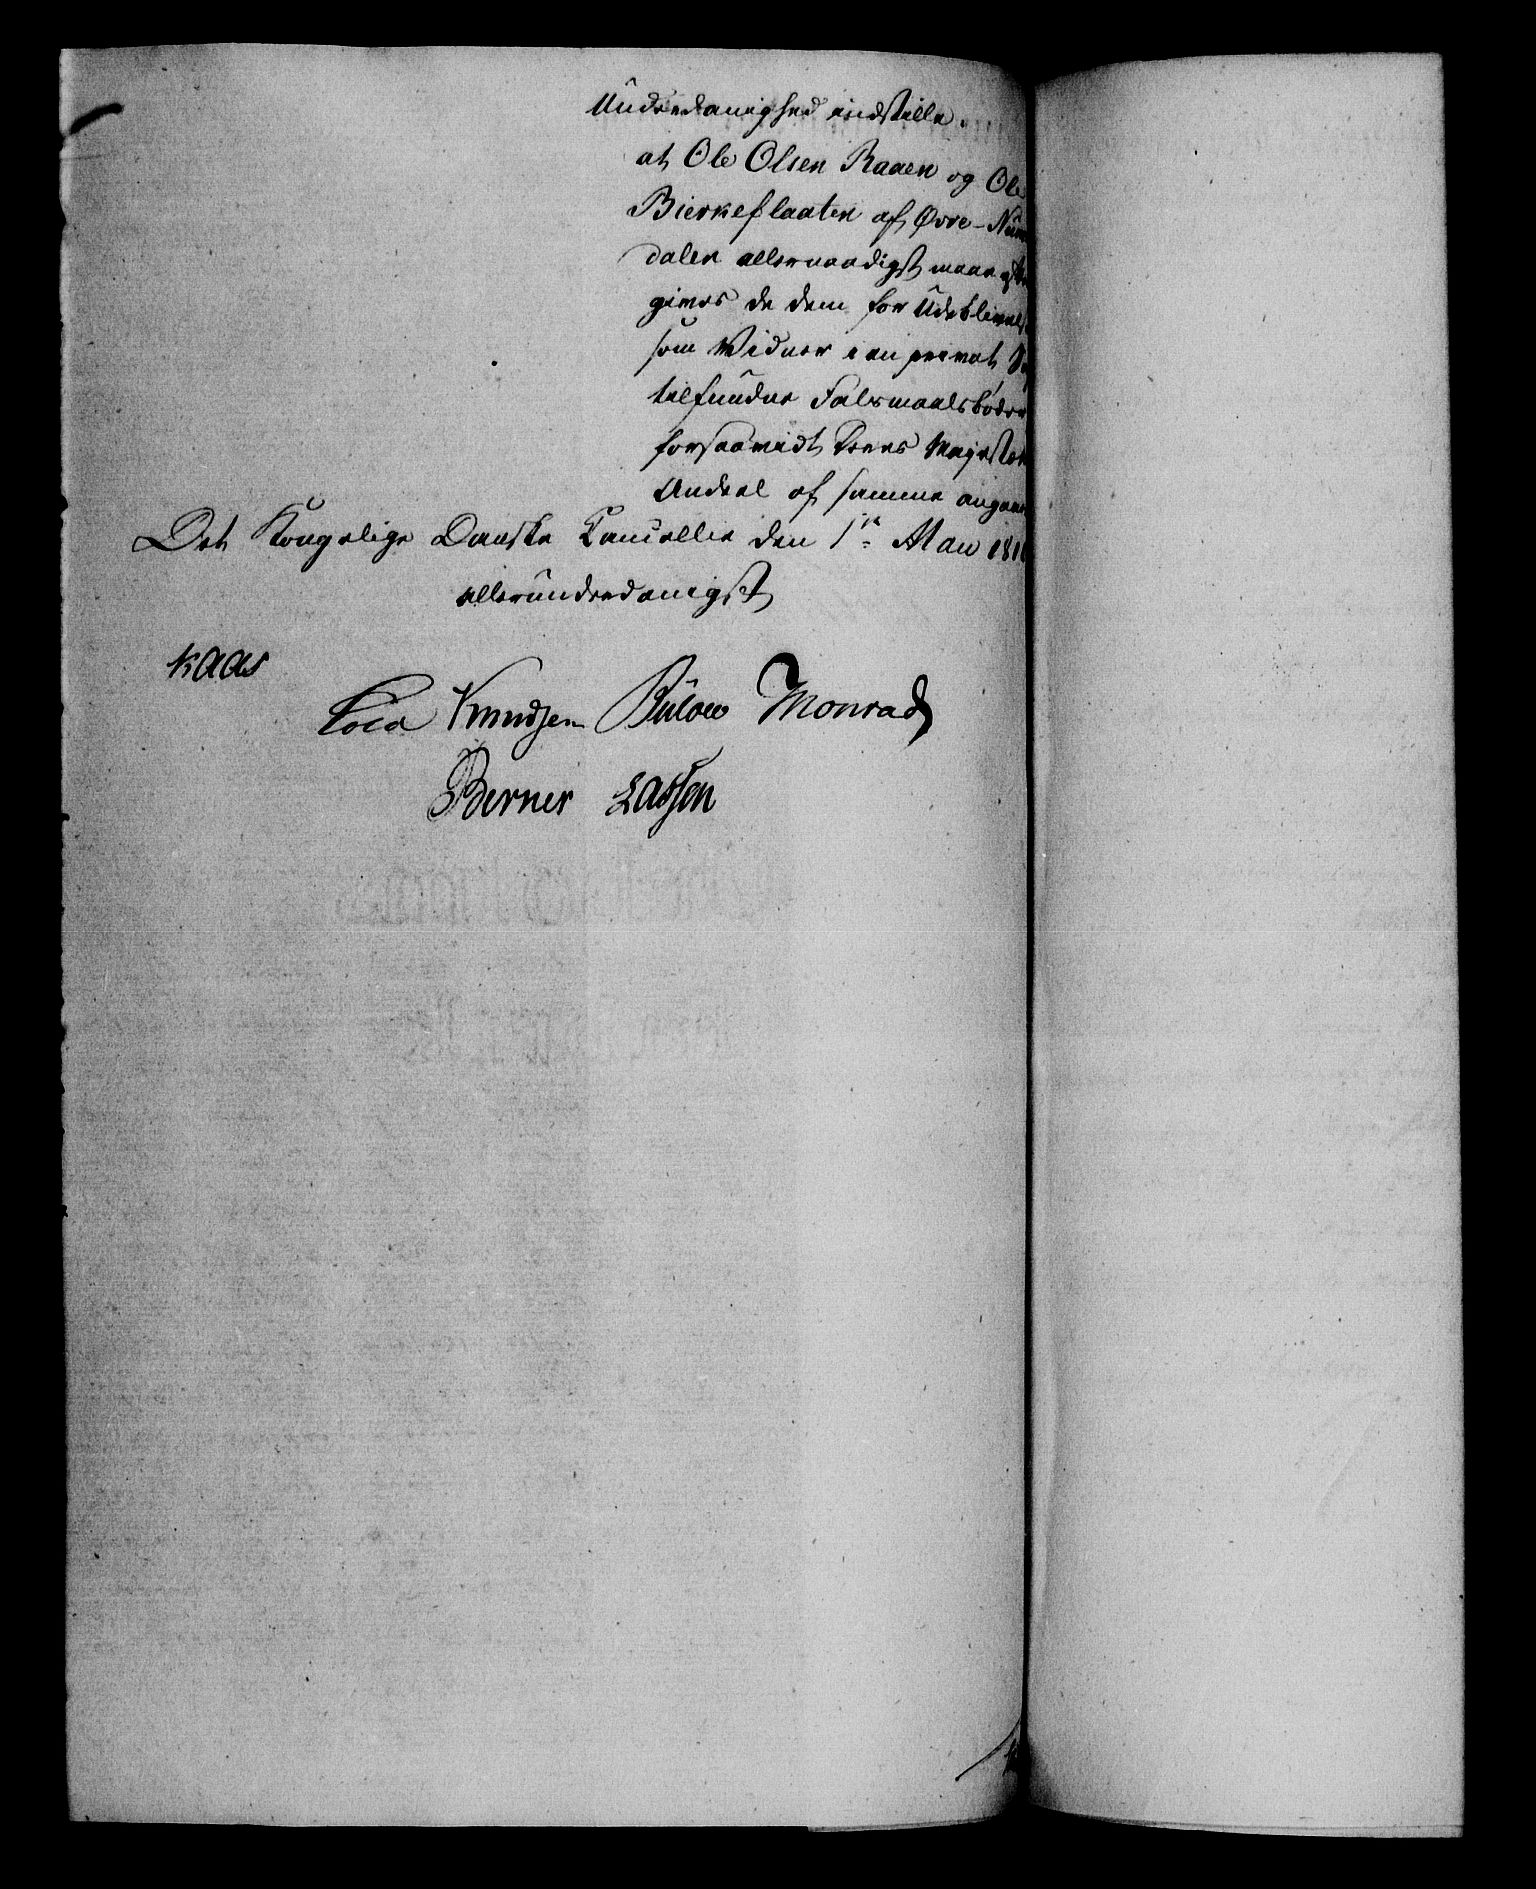 Underdanighed indstille.
at Ole Olsen Raaen og Ole
Bierkeflaaten af Øvre-Num
dalen allernaadigst maae efter
gives de dem for Udeblivels
som Vidner i en privat Sag
tilfundne Falsmaalsbøder
forsaavidt Deres Majestæts
Andeel af samme angaaer
Det Kongelige Danske Cancellie den 1te Mai 181
allerunderdanigst
Kaas
Cold Knudsen Bülow Monrad
Berner Lassen